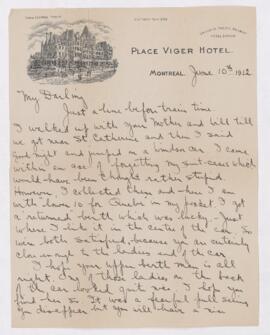 PLACE VIGER HOTEL.
MONTREAL, June 10th 1912
My Darling
Just a line before train time.
I walked up with your Mother and Bill till
we got near St Catherine and then I said
good night and jumped on a Windsor car. I came
within an ace of forgetting my suit-cases which
would have been rather stupid.
However I collected them and when I
with lower 10 for Quebec in my pocket I got
a returned berth which was lucky - Just
where I like it in the centre of the car. So
were both satisfied, because you are
close enough to the ladies end of the car
I hope your upper berth man is all
right. One of those ladies on the back
of the car looked quite nice. I hope you
find her so. It was a fearful pull seeing
you disappear but you will have a nice